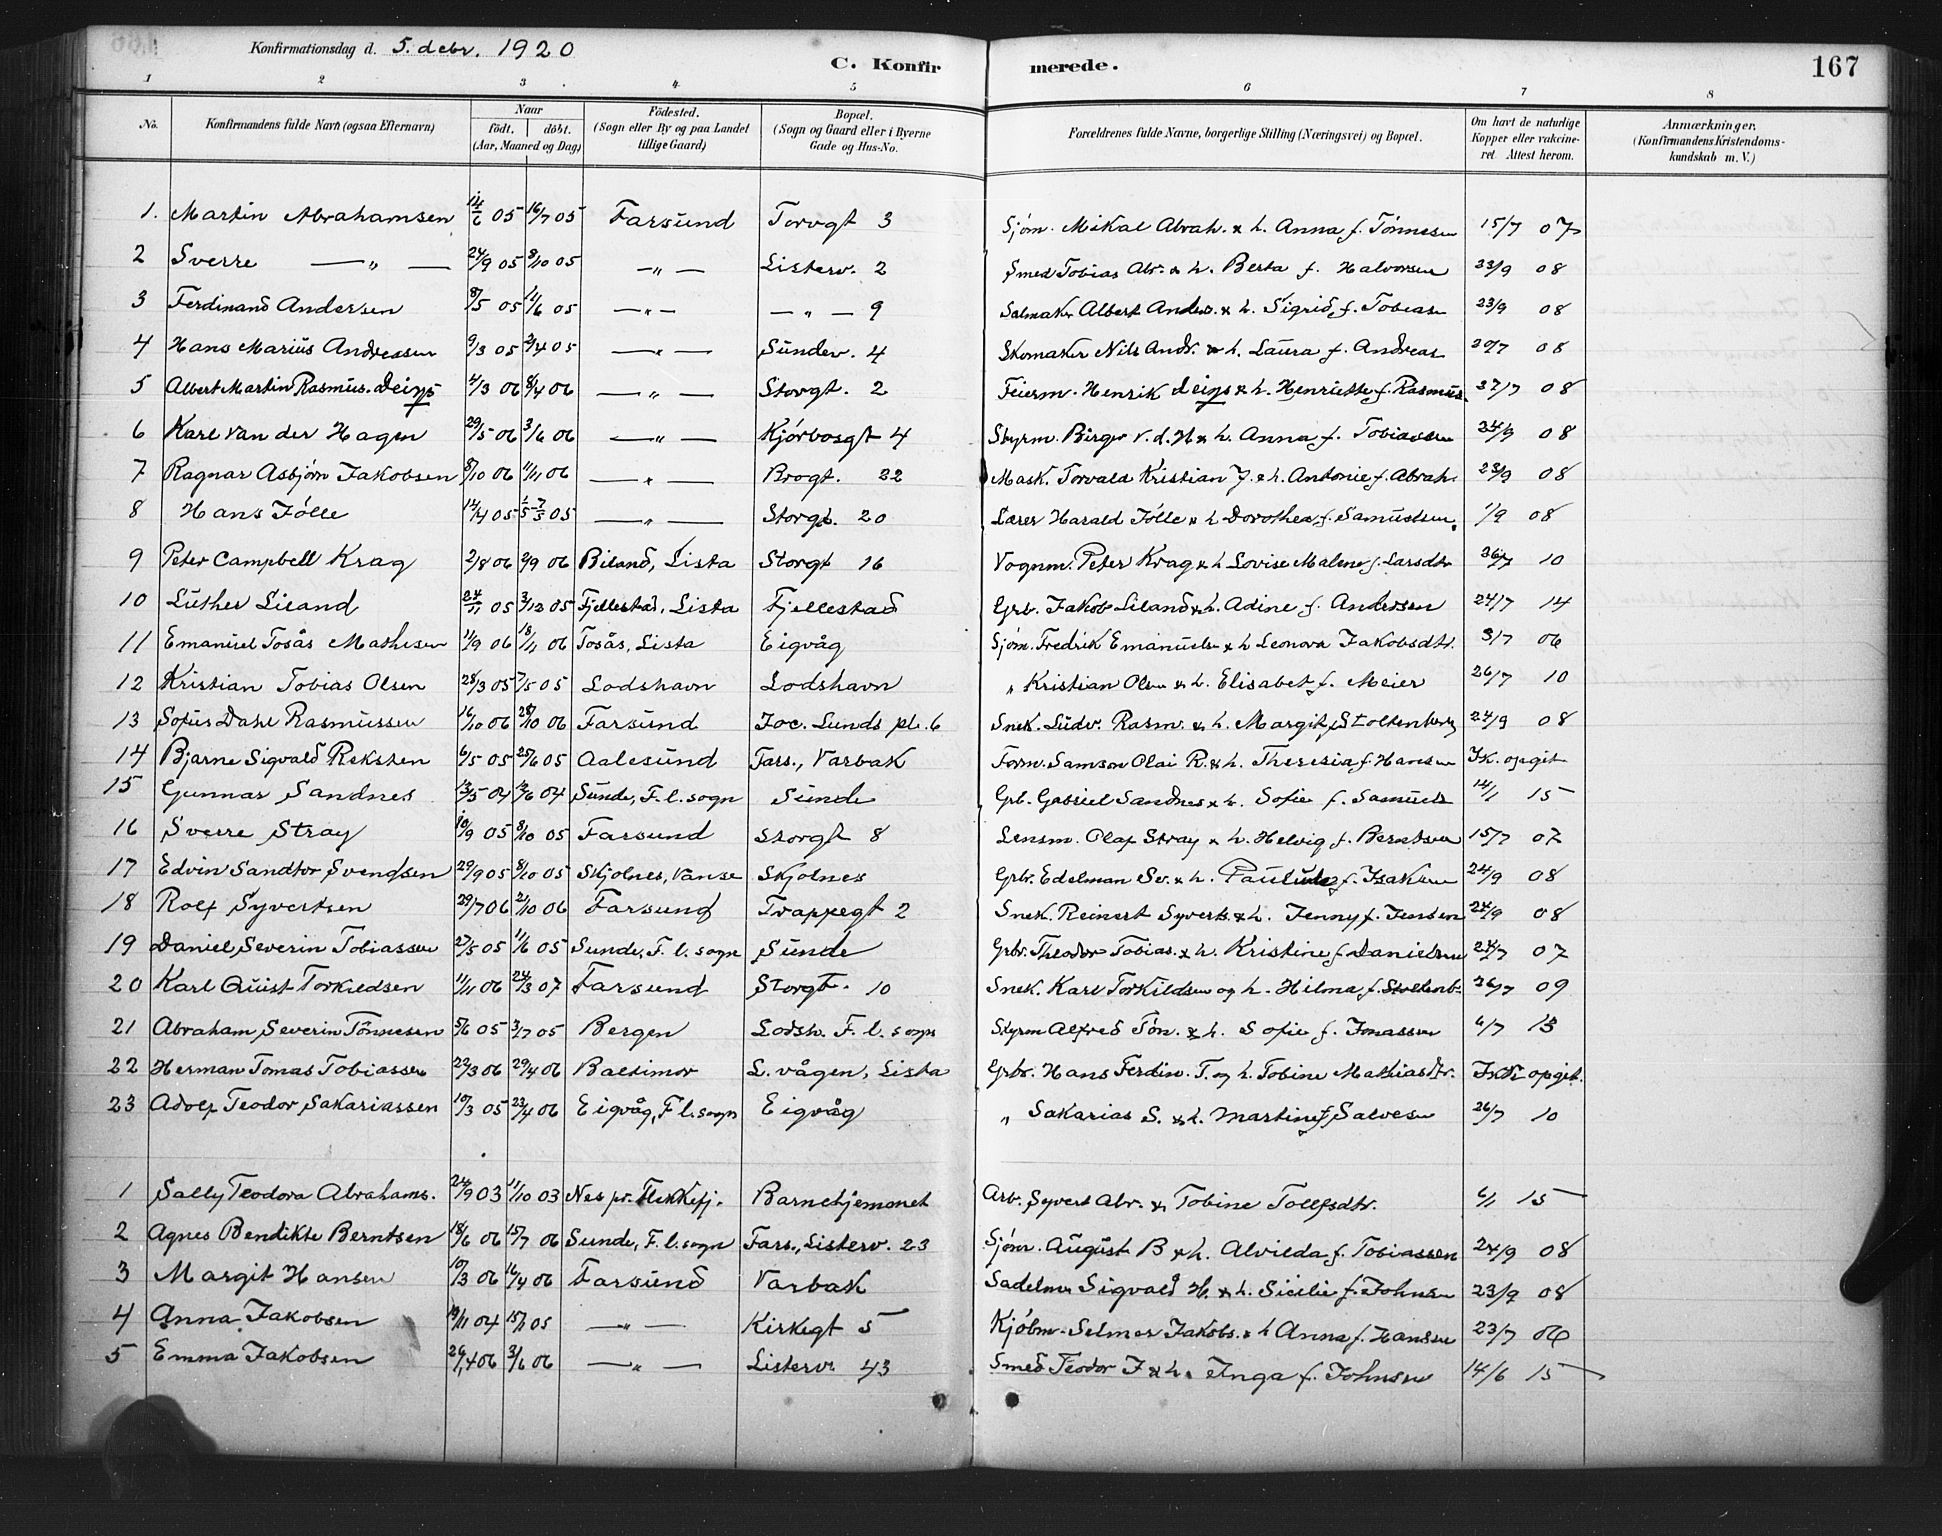 Konfirmationsdag d. 5. debr. 1920
C. Konfirmerede.
167
1 2 3 4 5 6 7 8
No.
Konfirmandens fulde Navn (ogsaa Efternavn)
Naar
födt. döbt.
(Aar, Maaned og Dag)
Födested.
(Sogn eller By og paa Landet
tillige Gaard)
Bopæl.
(Sogn og Gaard eller i Byerne
Gade og Hus-No.
Forældrenes fulde Navne, borgerlige Stilling (Næringsvei) og Bopæl.
Om havt de naturlige
Kopper eller vakcine-
ret Attest herom.
Anmærkninger.
(Konfirmandens Kristendoms-
kundskab m. V.)
1. Martin Abrahamsen 14/6 05 16/7 05 Farsund Torvgt 3 Sjøm. Mikal Abrah. & h. Anna f. Tønnesen 15/7 07
2 Sverre —"— 24/9 05 8/10 05 —"— Listerv. 2 Smed Tobias Abr. & h. Berta f. Halvorsen 23/9 08
3 Ferdinand Andersen 8/5 05 11/6 05 —"— —"— 9 Salmaker Albert Anders. & h. Sigrid f. Tobiasen 23/9 08
4 Hans Marius Andreassen 9/3 05 2/4 05 —"— Sundev. 4 Skomaker Nils Andr. & h. Laura f. Andreas 08
5 Albert Martin Rasmus. Deigs 4/3 06 8/4 06 —"— Storgt. 2 Feierm. Henrik Deigs & h. Henriette f. Rasmus. 27/7 08
6 Karl van der Hagen 29/5 06 3/6 06 —"— Kjørbosgt 4 Styrm. Birger v. d. H & h. Anna f. Tobiassen 24/9 08
7 Ragnar Asbjørn Jakobsen 8/10 06 11/11 06 —"— Brogt. 22 Mask. Torvald Kristian J. & h. Antonie f. Abrah. 23/9 08
8 Hans Tølle 14/4 05 7/5 05 —"— Storgt. 20 Lærer Harald Tølle & h Dorothea f. Samuelsen. 1/9 08
9 Peter Campbell Krag 2/8 06 2/9 06 Biland, Lista Storgt 16 Vognm. Peter Krag & h Lovise Malene f. Larsdtr 26/7 10
10 Luther Liland 24/11 05 3/12 05 Fjellestad, Lista Fjellestad Grb. Jakob Liland & h. Adine f. Andersen 24/7 14
11 Emanuel Tosås Mathisen 11/9 06 18/11 06 Tosås, Lista Eigvåg Sjøm. Fredrik Emanuelsen & h Leonora Jakobsdtr. 3/7 06
12 Kristian Tobias Olsen 28/3 05 7/5 05 Lodshavn Lodshavn " Kristian Olsen & h. Elisabet f. Meier 26/7 10
13 Sofus Dahl Rasmussen 16/10 06 28/10 06 Farsund Joc. Lunds pl. 6 Snek. Ludv. Rasm. & h. Margit Stoltenberg 24/9 08
14 Bjarne Sigvald Reksten 6/5 05 25/6 05 Aalesund Fars., Varbak Form. Samson Olai R. & h. Theresia f. Hansen Ik. opgit
15 Gunnar Sandnes 13/5 04 12/6 04 Sunde, F. l. sogn Sunde Grb. Gabriel Sandnes & h. Sofie f. Samuels 14/1 15
16 Sverre Stray 10/9 05 8/10 05 Farsund Storgt 8 Lensm. Olaf Stray & h. Helvig f. Berntsen 15/7 07
17 Edvin Sandtor Svendsen 29/9 05 8/10 05 Skjolnes, Vanse Skjolnes Grb. Edelman Sv. & h. Pauline f. Isaksen 24/9 08
18 Rolf Syvertsen 29/7 06 2/10 06 Farsund Trappegt 2 Snek. Reinert Syverts. & h. Jenny f. Jensen 24/9 08
19 Daniel Severin Tobiassen 27/5 05 11/6 05 Sunde, F. l. sogn Sunde Grb. Theodor Tobias. & h. Kristine f Danielsen 24/7 07
20 Karl Quist Torkildsen 11/11 06 24/3 07 Farsund Storgt. 10 Snek. Karl Torkildsen og h. Hilma f. Stoltenb. 26/7 09
21 Abraham Severin Tønnesen 5/6 05 3/7 05 Bergen Lodsh. F. l. sogn Styrm Alfred Tøn. & h. Sofie f. Jonassen 6/7 13
22 Herman Tomas Tobiassen 22/3 06 29/4 06 Baltimor L. vågen, Lista Grb. Hans Ferdin. T. og h. Tobine Mathiasdtr. Ikke opgit.
23 Adolf Teodor Sakariassen 10/3 05 23/4 06 Eigvåg, F l. sogn Eigvåg " Sakarias S. & h. Martine f Salvesen 26/7 10
1 Sally Teodora Abrahams. 24/9 03 11/10 03 Nes pr. Flekkefj. Barnehjemmet Arb. Syvert Abr. & Tobine Tollefsdtr. 6/1 15
2 Agnes Bendikte Berntsen 18/6 06 15/7 06 Sunde, F. l. sogn Fars., Listerv. 23 Sjøm. August B & h. Alvilda f. Tobiassen 24/9 08
3 Margit Hansen 10/3 06 16/4 06 Farsund Varbak Sadelm. Sigvald H. & h. Sicilie f. Johnsen 23/9 08
4 Anna Jakobsen 19/11 04 15/1 05 —"— Kirkegt 5 Kjøbm. Selmer Jakobs. & h Anna f. Hansen 23/7 06
5 Emma Jakobsen 26/4 06 3/6 06 —"— Listerv. 43 Smed Teodor J & h. Inga f. Johnsen 14/6 15